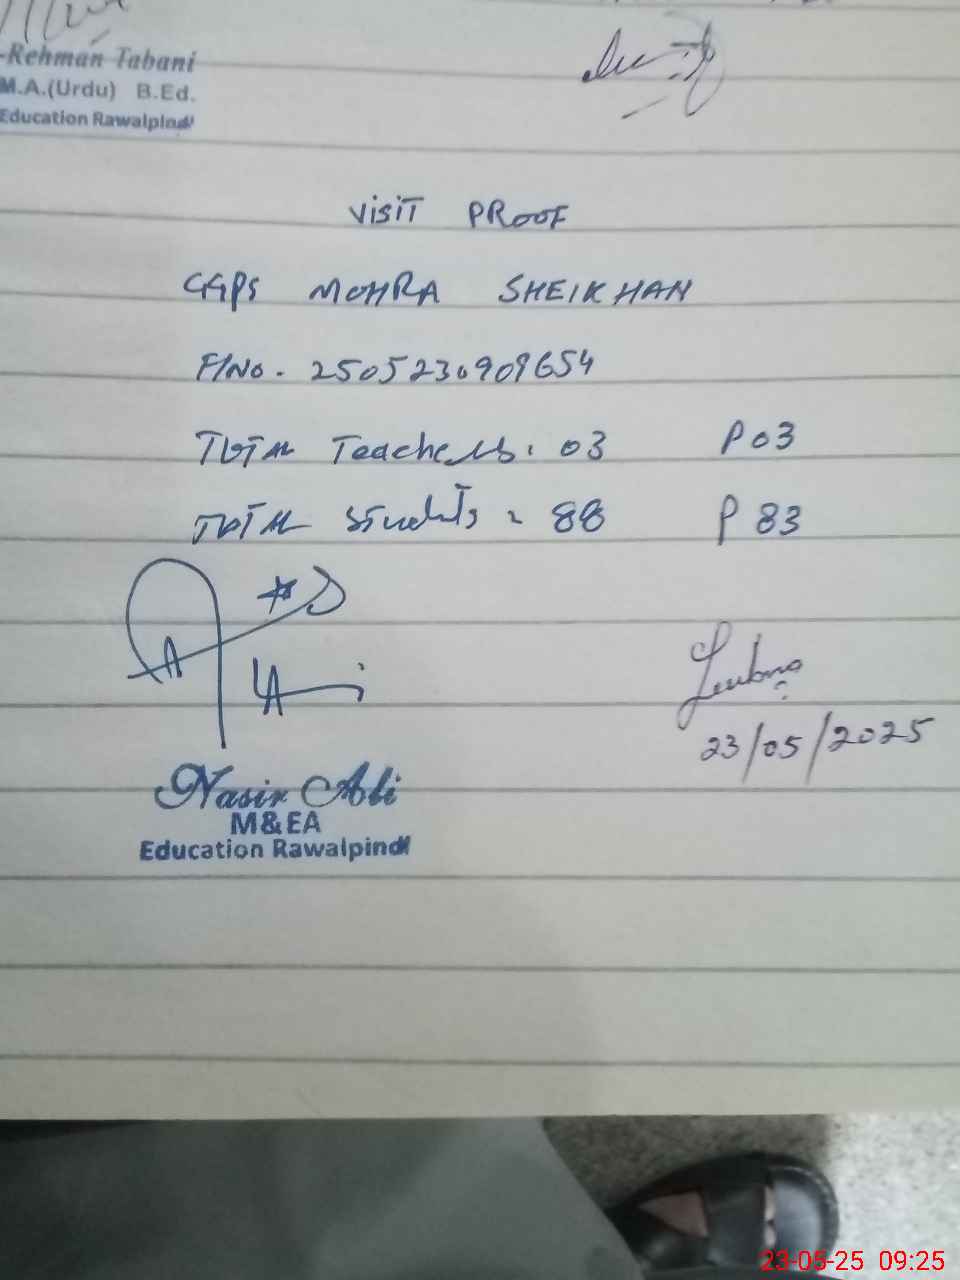 -Rehman Tabani
M.A.(Urdu) B.Ed.
Education Rawalpindi
VISIT PROOF
GGPS MOHRA SHEIKHAN
F/No. 2505230909654
TOTAL Teachers. 03 P 03
TOTAL Students = 88 P 83
Lubna
23/05/2025
Nasir Ali
M&EA
Education Rawalpindi
23-05-25 09:25